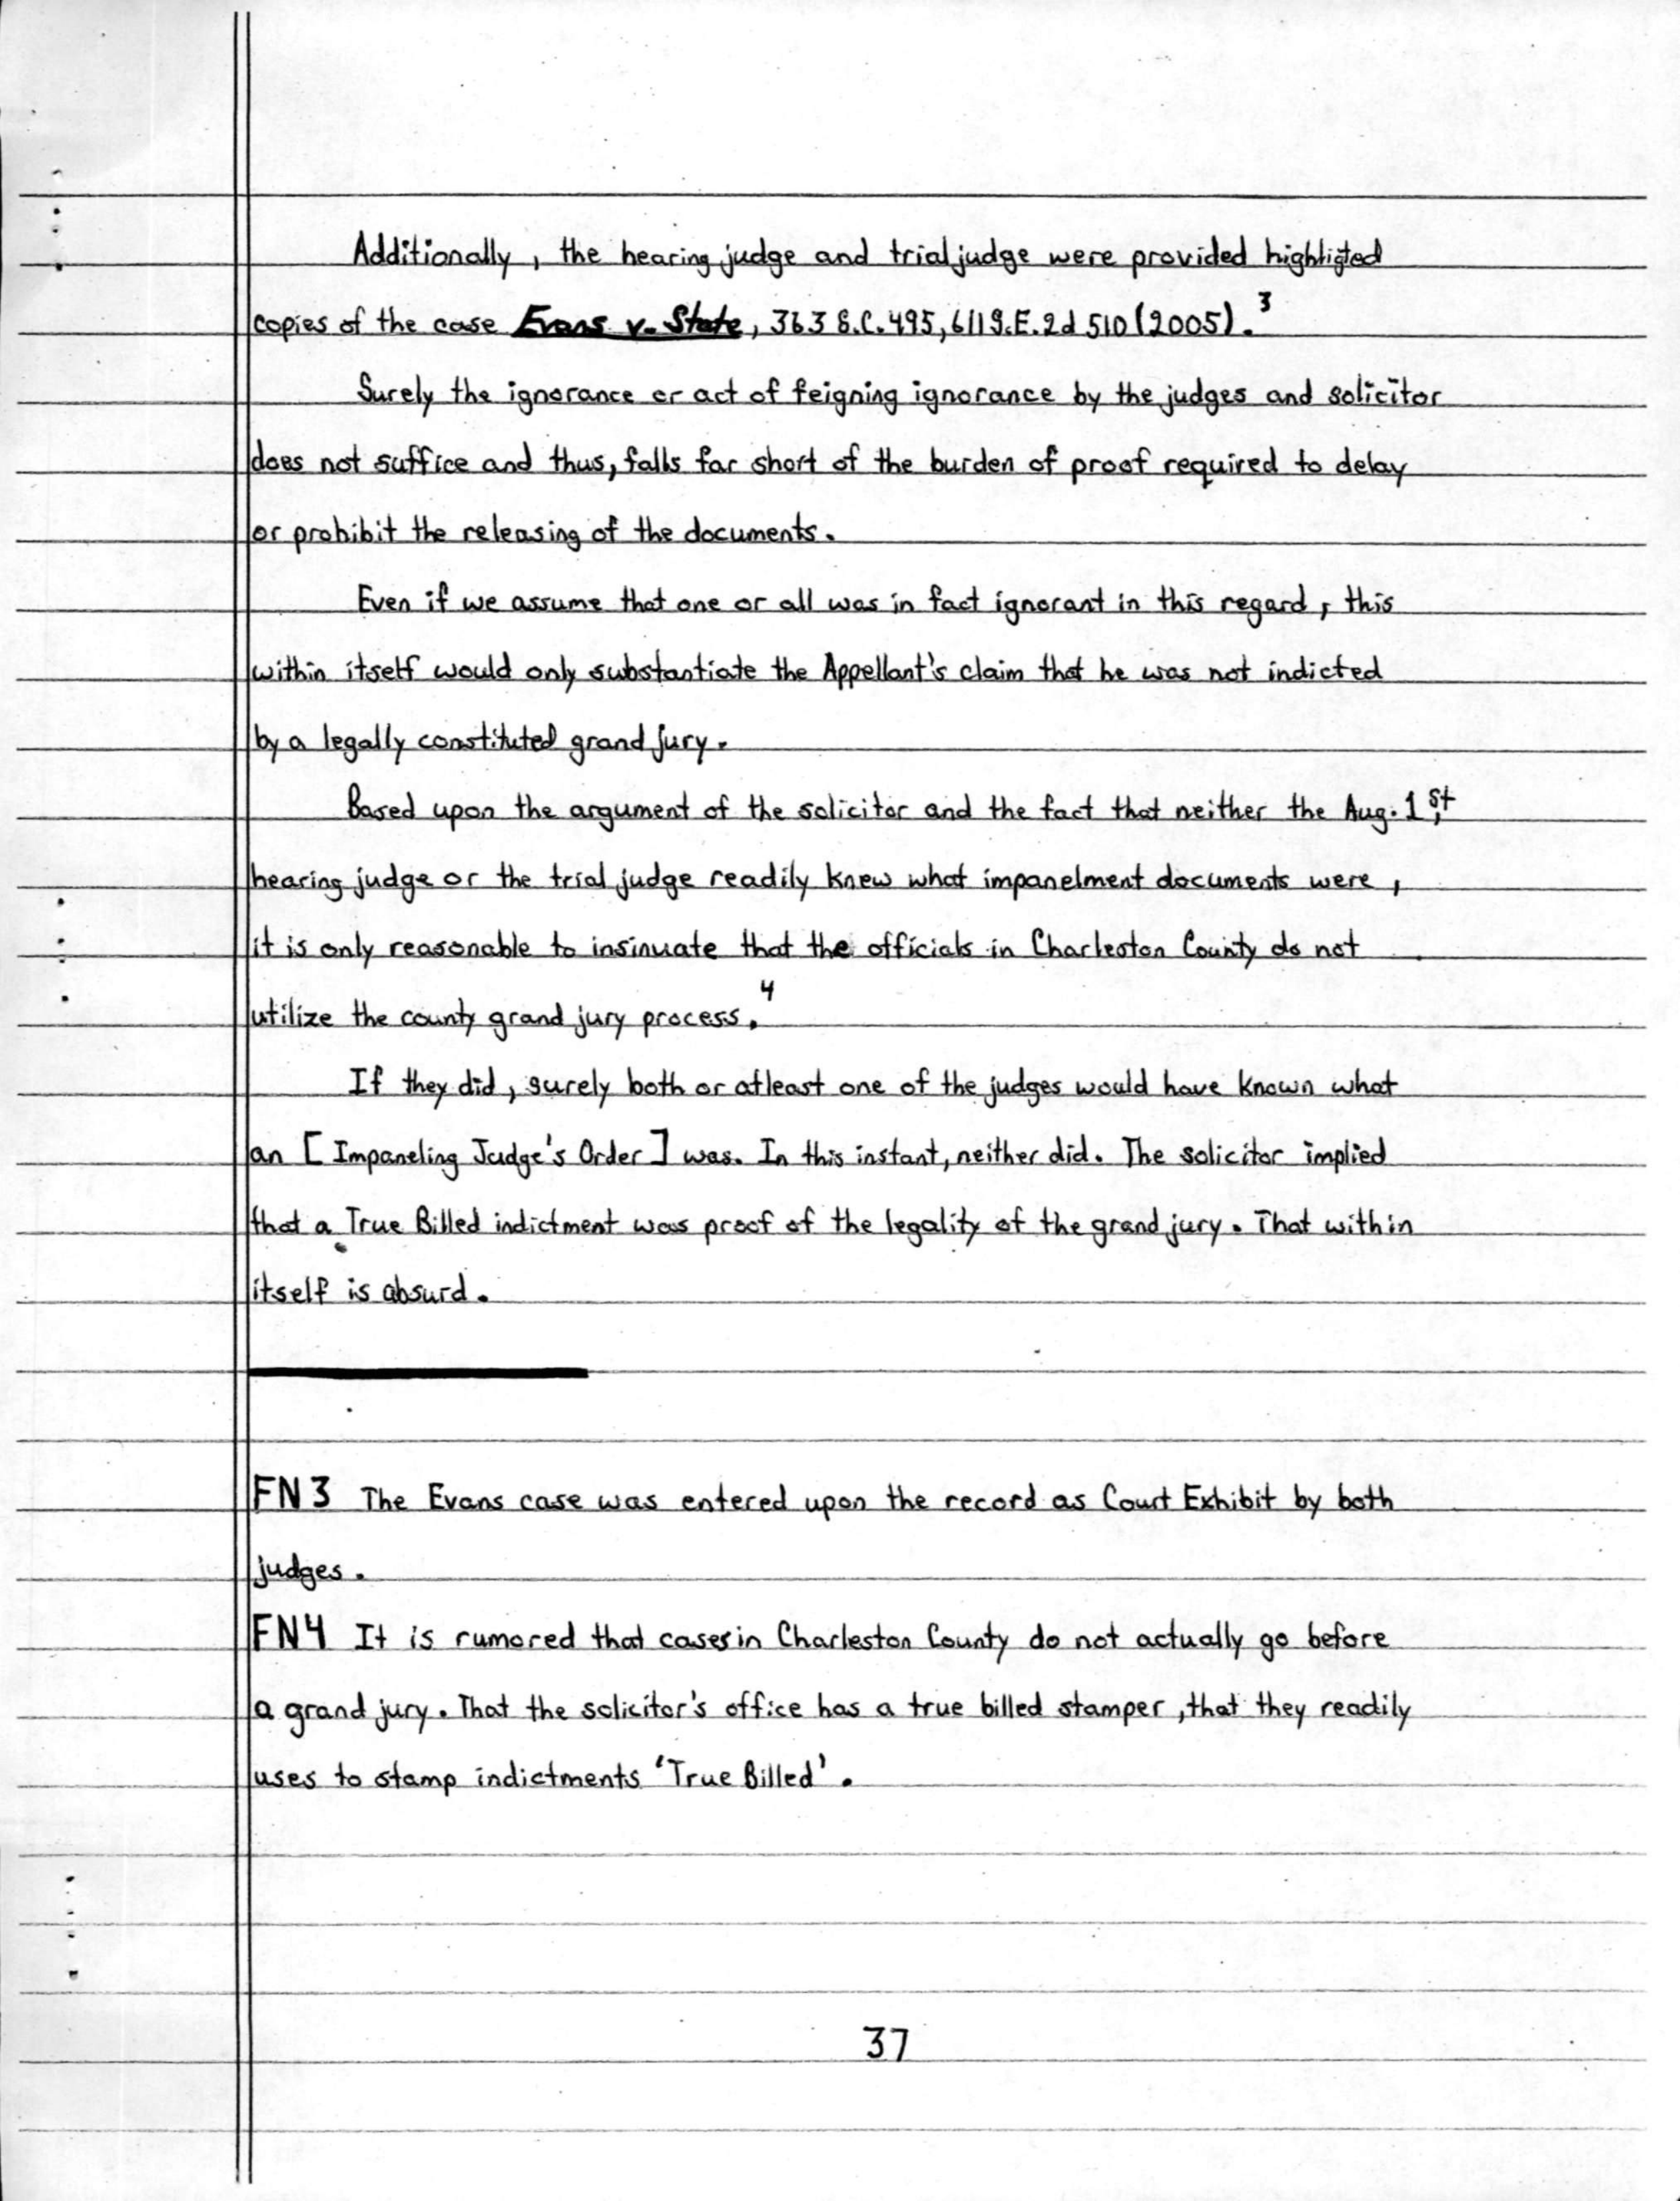 Additionally, the hearing judge and trial judge were provided highligted
copies of the case Evans v. State, 363 S.C. 495, 611 S.E.2d 510 (2005).³
Surely the ignorance or act of feigning ignorance by the judges and solicitor
does not suffice and thus, falls far short of the burden of proof required to delay
or prohibit the releasing of the documents.
Even if we assume that one or all was in fact ignorant in this regard, this
within itself would only substantiate the Appellant's claim that he was not indicted
by a legally constituted grand jury.
Based upon the argument of the solicitor and the fact that neither the Aug. 1st,
hearing judge or the trial judge readily knew what impanelment documents were,
it is only reasonable to insinuate that the officials in Charleston County do not
utilize the county grand jury process.⁴
If they did, surely both or atleast one of the judges would have known what
an [Impaneling Judge's Order] was. In this instant, neither did. The solicitor implied
that a True Billed indictment was proof of the legality of the grand jury. That within
itself is absurd.
FN3 The Evans case was entered upon the record as Court Exhibit by both
judges.
FN4 It is rumored that cases in Charleston County do not actually go before
a grand jury. That the solicitor's office has a true billed stamper, that they readily
uses to stamp indictments 'True Billed'.
37